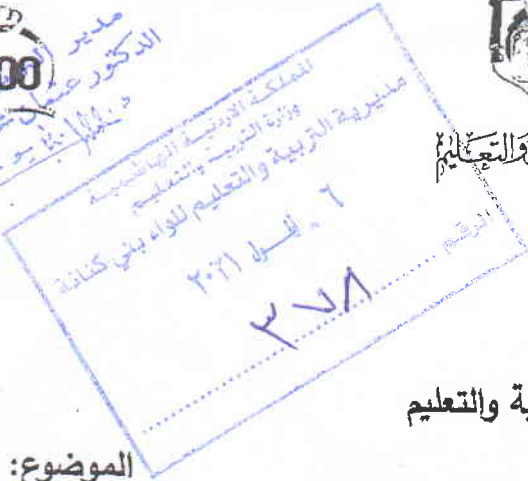 00
مدير
الدكتور
والتعليم
المملكة الاردنية الهاشمية
وزارة التربية والتعليم
مديرية التربية والتعليم للواء بني كنانة
٦ - ايلول ٢٠٢١
الرقم
٣٧٨
ية والتعليم
الموضوع: